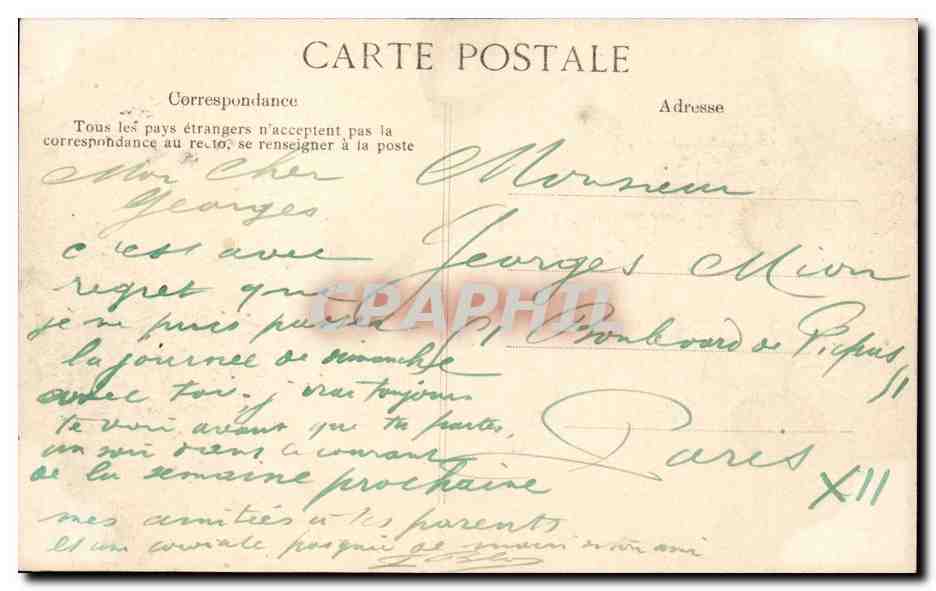 CARTE POSTALE
Correspondance
Tous les pays étrangers n'acceptent pas la
correspondance au recto, se renseigner à la poste
Mon Cher
Georges
c'est avec
regret que
je ne puis passer
la journée de dimanche
avec toi. j'irai toujours
te voir avant que tu partes,
un soir dans le courant
de la semaine prochaine
mes amitiés à tes parents
et une cordiale poignée de main de ton ami
Adresse
Monsieur
Georges Mion
Boulevard de Picpus
Paris
XII
CPAPHIL